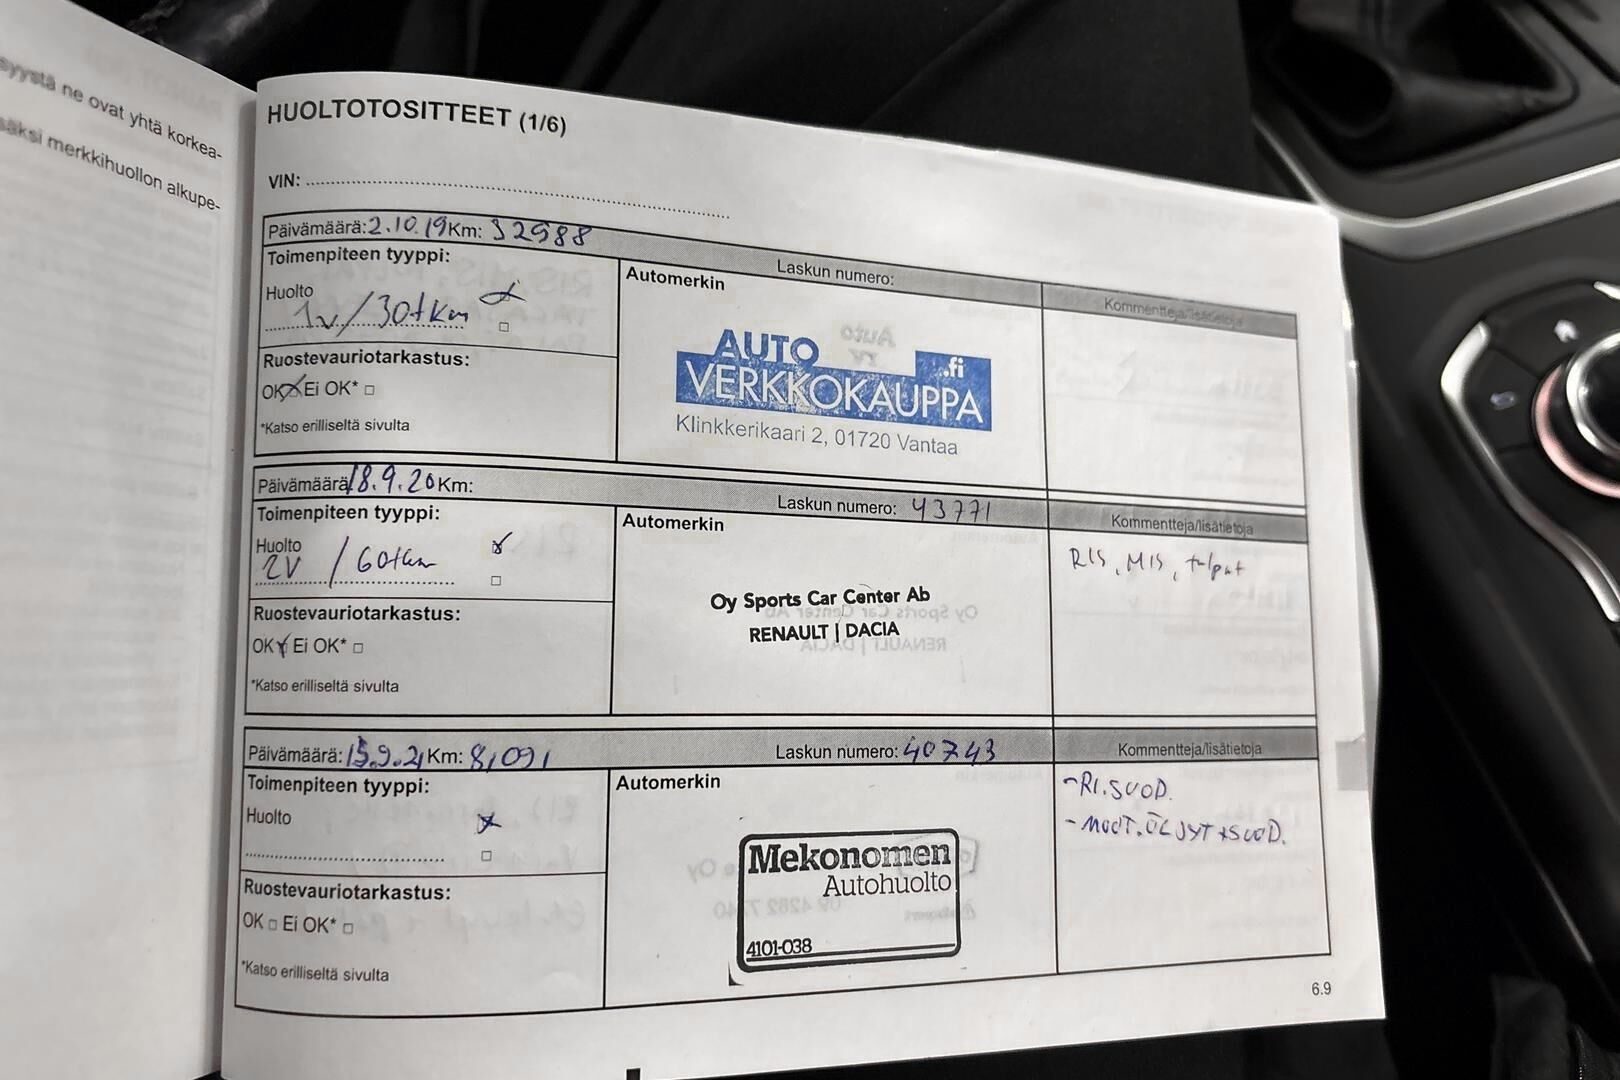 syystä ne ovat yhtä korkea-
säksi merkkihuollon alkupe-
HUOLTOTOSITTEET (1/6)
VIN:
Päivämäärä: 2.10.19 Km: 32988
Laskun numero:
Kommentteja/lisätietoja
Toimenpiteen tyyppi:
Automerkin
Huolto
1v/30tkm
Ruostevauriotarkastus:
OK Ei OK*
*Katso erilliseltä sivulta
AUTO
VERKKOKAUPPA
.fi
Klinkkerikaari 2, 01720 Vantaa
Päivämäärä 18.9.20 Km:
Laskun numero: 43771
Kommentteja/lisätietoja
Toimenpiteen tyyppi:
Automerkin
Huolto
2V / 60tkm
RIS, MIS, tulpat
Ruostevauriotarkastus:
OK Ei OK*
*Katso erilliseltä sivulta
Oy Sports Car Center Ab
RENAULT | DACIA
Päivämäärä: 15.9.21 Km: 81091
Laskun numero: 40743
Kommentteja/lisätietoja
Toimenpiteen tyyppi:
Automerkin
Huolto
- RI.SUOD.
- MOOT.ÖLJYT+SUOD.
Ruostevauriotarkastus:
OK Ei OK*
*Katso erilliseltä sivulta
Mekonomen
Autohuolto
4101-038
6.9